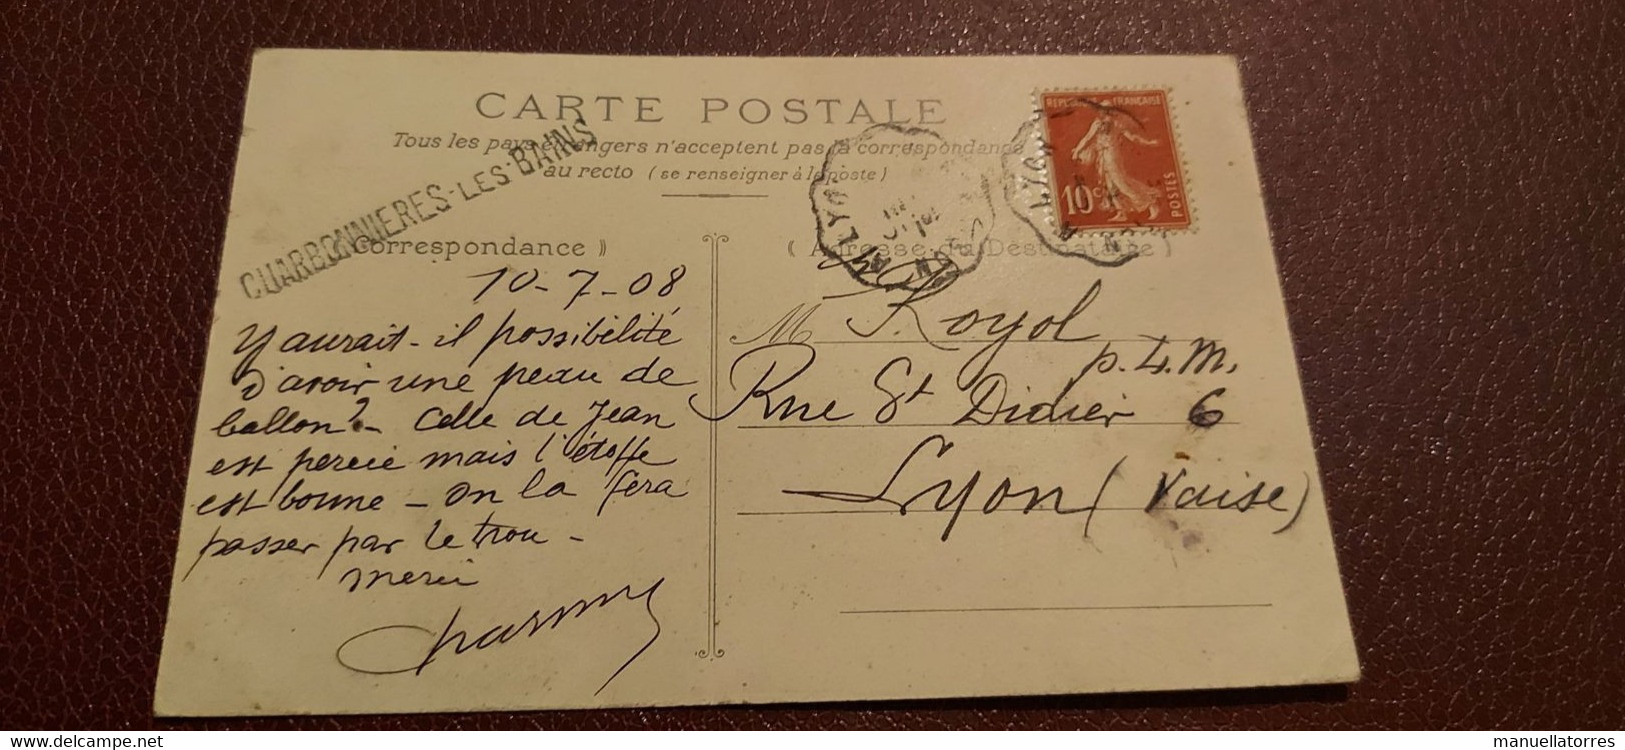 CARTE POSTALE
Tous les pays étrangers n'acceptent pas la correspondance
au recto (se renseigner à la poste)
CHARBONNIERES-LES-BAINS
Correspondance )
( Adresse du Destinataire )
REPUBLIQUE FRANÇAISE
10c
POSTES
LYON
LYON
10-7-08
Y aurait-il possibilité
d'avoir une peau de
ballon? - Celle de Jean
est percée mais l'étoffe
est bonne - on la fera
passer par le trou -
merci
M Royol
p.L.M.
Rue St Didier 6
Lyon (Vaise)
manuellatorres